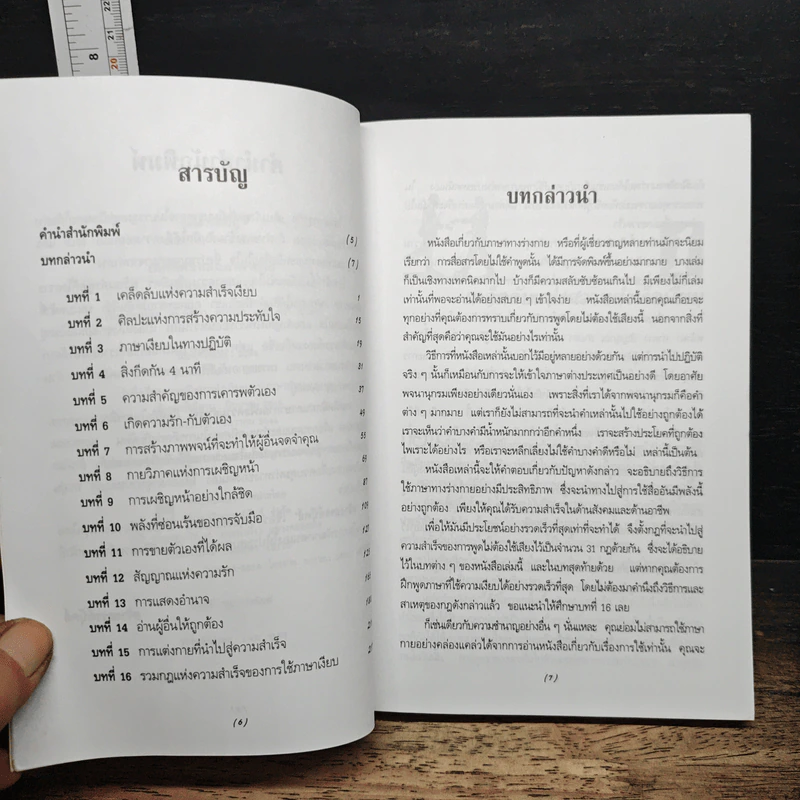 8
22
21
20
สารบัญ
คำนำสำนักพิมพ์ (5)
บทกล่าวนำ (7)
บทที่ 1 เคล็ดลับแห่งความสำเร็จเงียบ 1
บทที่ 2 ศิลปะแห่งการสร้างความประทับใจ 15
บทที่ 3 ภาษาเงียบในทางปฏิบัติ 19
บทที่ 4 สิ่งกีดกัน 4 นาที 31
บทที่ 5 ความสำคัญของการเคารพตัวเอง 37
บทที่ 6 เกิดความรัก-กับตัวเอง 49
บทที่ 7 การสร้างภาพพจน์ที่จะทำให้ผู้อื่นจดจำคุณ 55
บทที่ 8 กายวิภาคแห่งการเผชิญหน้า 69
บทที่ 9 การเผชิญหน้าอย่างใกล้ชิด 87
บทที่ 10 พลังที่ซ่อนเร้นของการจับมือ 109
บทที่ 11 การขายตัวเองที่ได้ผล 121
บทที่ 12 สัญญาณแห่งความรัก
บทที่ 13 การแสดงอำนาจ
บทที่ 14 อ่านผู้อื่นให้ถูกต้อง
บทที่ 15 การแต่งกายที่นำไปสู่ความสำเร็จ
บทที่ 16 รวมกฎแห่งความสำเร็จของการใช้ภาษาเงียบ
(6)
บทกล่าวนำ
หนังสือเกี่ยวกับภาษาทางร่างกาย หรือที่ผู้เชี่ยวชาญหลายท่านมักจะนิยม
เรียกว่า การสื่อสารโดยไม่ใช้คำพูดนั้น ได้มีการจัดพิมพ์ขึ้นอย่างมากมาย บางเล่ม
ก็เป็นเชิงทางเทคนิคมากไป บ้างก็มีความสลับซับซ้อนเกินไป มีเพียงไม่กี่เล่ม
เท่านั้นที่พอจะอ่านได้อย่างสบาย ๆ เข้าใจง่าย หนังสือเหล่านี้บอกคุณเกือบจะ
ทุกอย่างที่คุณต้องการทราบเกี่ยวกับการพูดโดยไม่ต้องใช้เสียงนี้ นอกจากสิ่งที่
สำคัญที่สุดคือว่าคุณจะใช้มันอย่างไรเท่านั้น
วิธีการที่หนังสือเหล่านั้นบอกไว้มีอยู่หลายอย่างด้วยกัน แต่การนำไปปฏิบัติ
จริง ๆ นั้นก็เหมือนกับการจะให้เข้าใจภาษาต่างประเทศเป็นอย่างดี โดยอาศัย
พจนานุกรมเพียงอย่างเดียวนั่นเอง เพราะสิ่งที่เราได้จากพจนานุกรมก็คือคำ
ต่าง ๆ มากมาย แต่เราก็ยังไม่สามารถที่จะนำคำเหล่านั้นไปใช้อย่างถูกต้องได้
เราจะเห็นว่าคำบางคำมีน้ำหนักมากกว่าอีกคำหนึ่ง เราจะสร้างประโยคที่ถูกต้อง
ไพเราะได้อย่างไร หรือเราจะหลีกเลี่ยงไม่ใช้คำบางคำดีหรือไม่ เหล่านี้เป็นต้น
หนังสือเหล่านี้จะให้คำตอบเกี่ยวกับปัญหาดังกล่าว จะอธิบายถึงวิธีการ
ใช้ภาษาทางร่างกายอย่างมีประสิทธิภาพ ซึ่งจะนำทางไปสู่การใช้สื่ออันมีพลังนี้
อย่างถูกต้อง เพียงให้คุณได้รับความสำเร็จในด้านสังคมและด้านอาชีพ
เพื่อให้มันมีประโยชน์อย่างรวดเร็วที่สุดเท่าที่จะทำได้ จึงตั้งกฎที่จะนำไปสู่
ความสำเร็จของการพูดไม่ต้องใช้เสียงไว้เป็นจำนวน 31 กฎด้วยกัน ซึ่งจะได้อธิบาย
ไว้ในบทต่าง ๆ ของหนังสือเล่มนี้ และในบทสุดท้ายด้วย แต่หากคุณต้องการ
ฝึกพูดภาษาที่ใช้ความเงียบได้อย่างรวดเร็วที่สุด โดยไม่ต้องมาคำนึงถึงวิธีการและ
สาเหตุของกฎดังกล่าวแล้ว ขอแนะนำให้ศึกษาบทที่ 16 เลย
ก็เช่นเดียวกับความชำนาญอย่างอื่น ๆ นั่นแหละ คุณย่อมไม่สามารถใช้ภาษา
กายอย่างคล่องแคล่วได้จากการอ่านหนังสือเกี่ยวกับเรื่องการใช้เท่านั้น คุณจะ
(7)